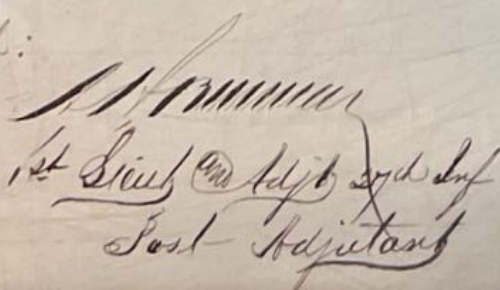 1st Lieut and Adjt 27th Inf
Post Adjutant